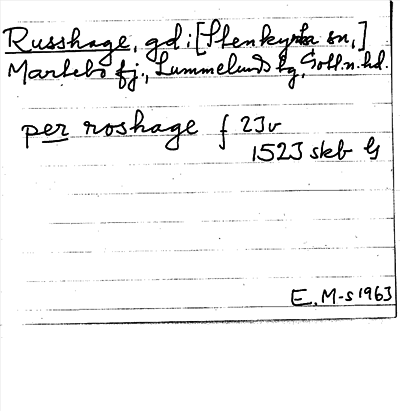 Russhage, gd i [Stenkyrka sn,]
Martebo fj., Lummelunds tg, Gotl.n.hd.
per roshage f 23v
1523 skb G
E. M-s 1963